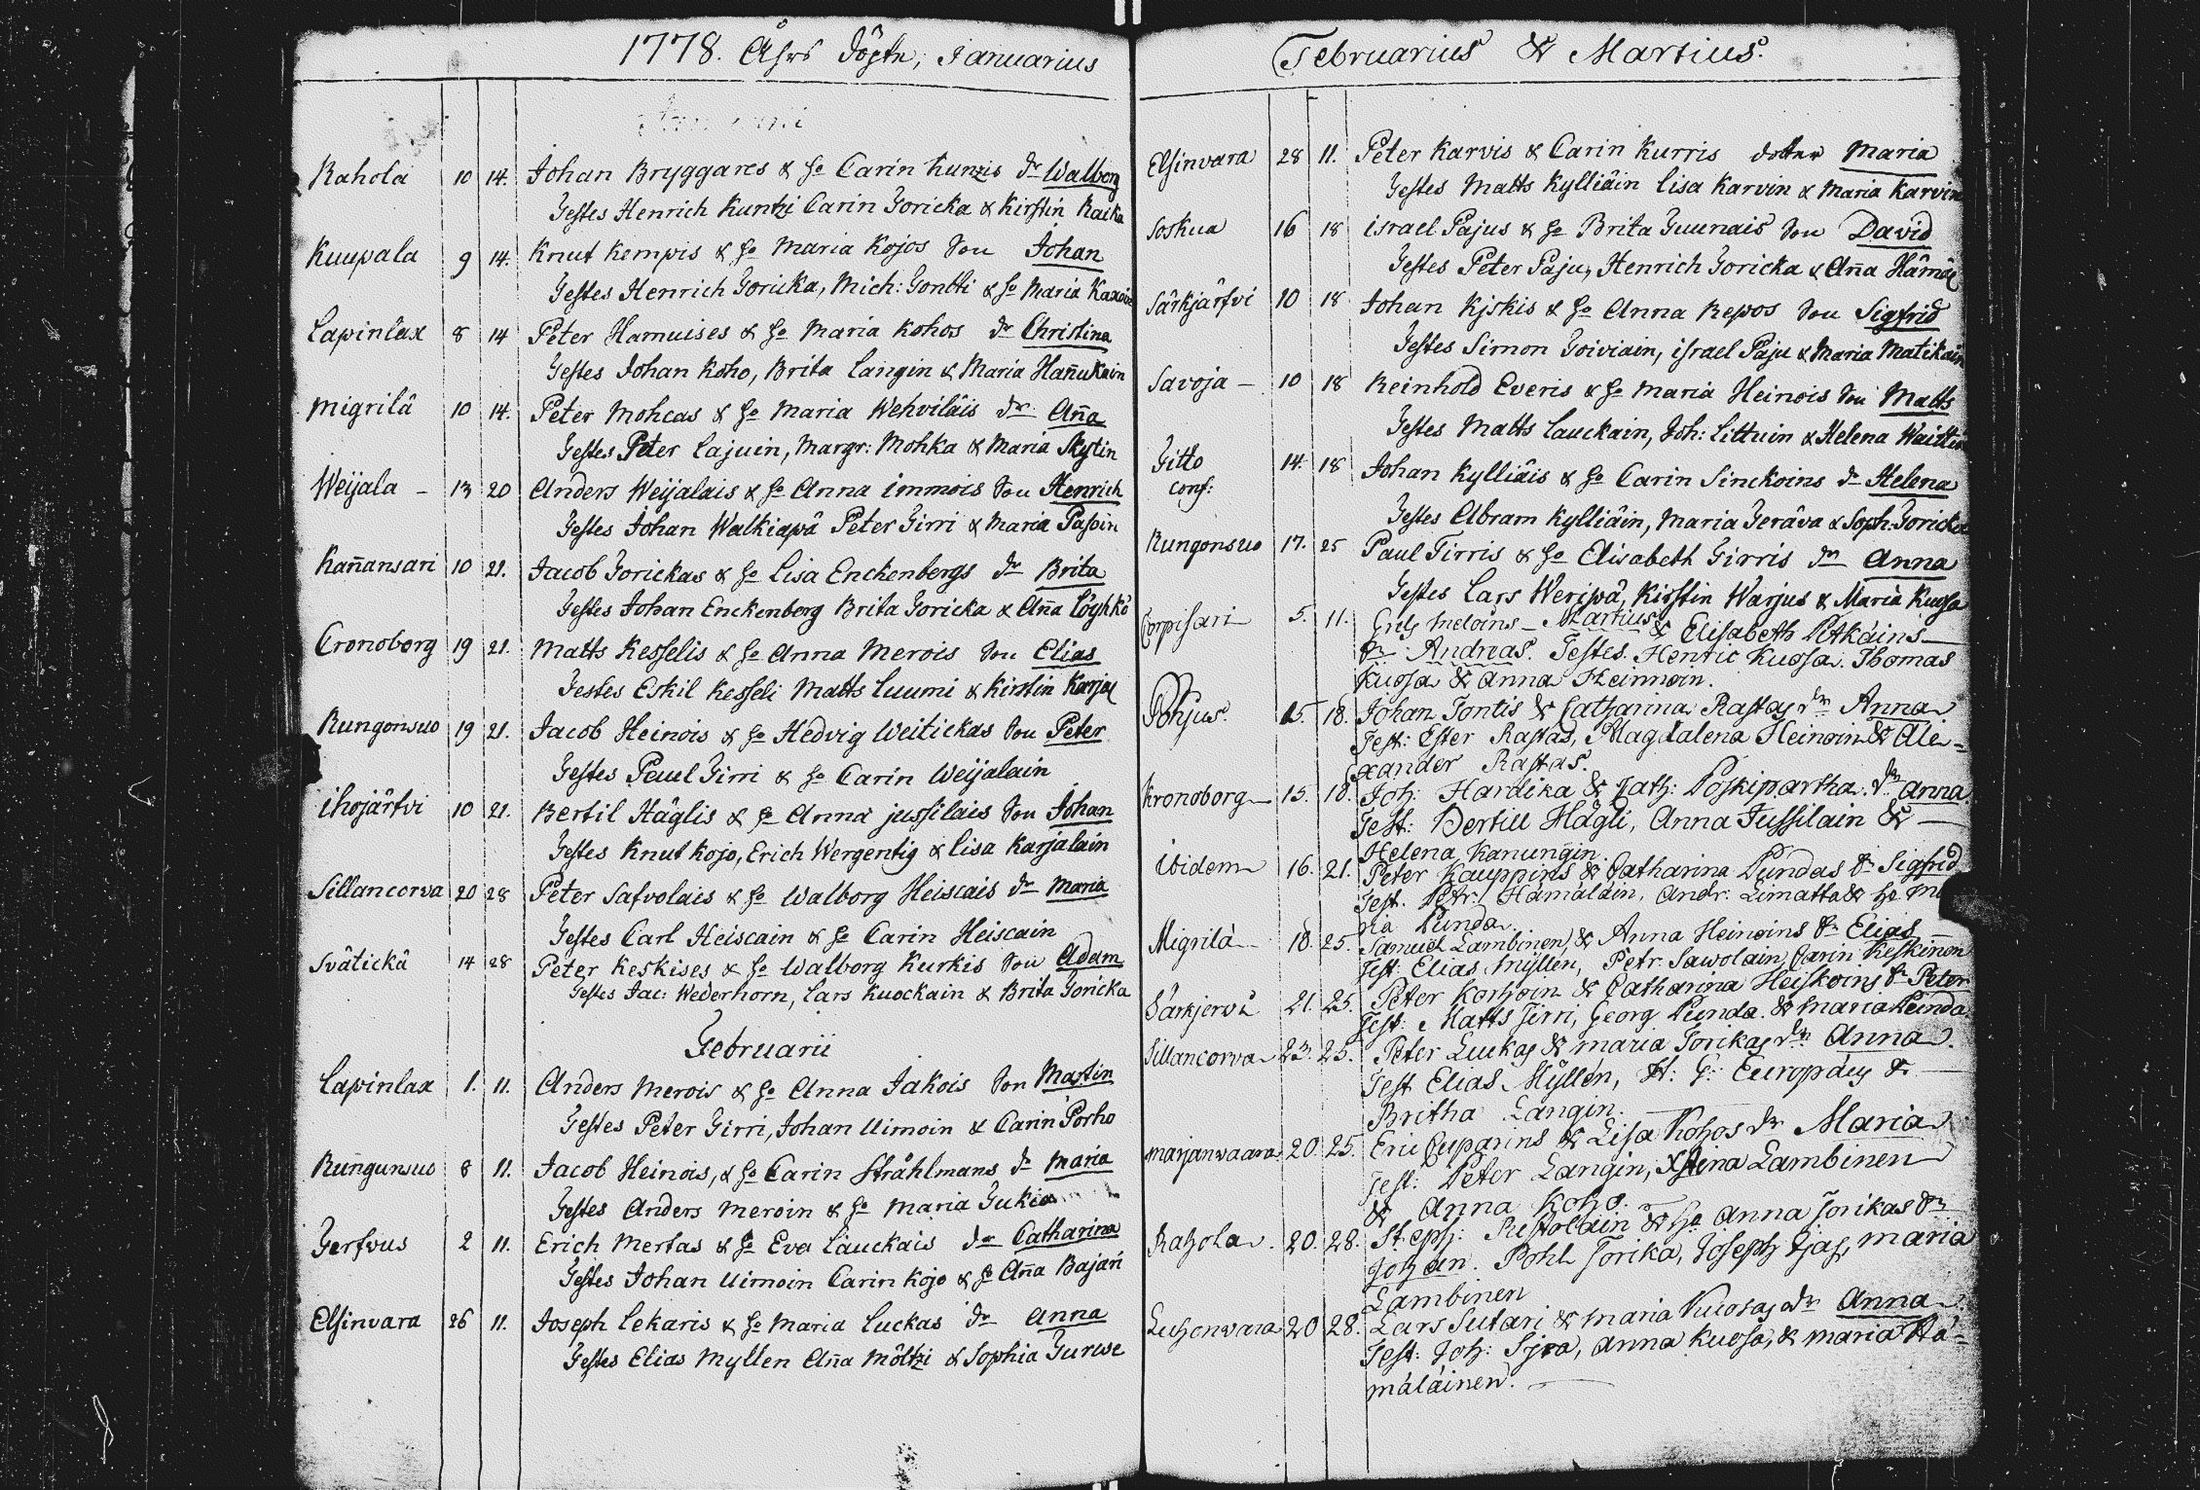 1778. Åhrs döpte, Januarius
Januarii
Rahola 10 14. Johan Bryggares & ho Carin Kunzis dr Walborg
Testes Henrich Kuntzi Carin Toricka & Kirstin Raika
Kuupala 9 14. Knut Kempis & ho Maria Kojos Son Johan
Testes Henrich Toricka, Mich: Tontti & ho Maria
Lapinlax 8 14 Peter Hamuises & ho Maria Kohos dr Christina
Testes Johan Koho, Brita Langin & Maria Hañukain
Migrilä 10 14. Peter Mohcas & ho Maria Wehviläis dr. Aña
Testes Peter Lajuin, Margr: Mohka & Maria Skytin
Weijala – 13 20 Anders Weijalais & ho Anna Immois Son Henrich
Testes Johan Walkiapä Peter Tirri & Maria Pasoin
Kañansari 10 21. Jacob Torickas & ho Lisa Enckenbergs dr Brita
Testes Johan Enckenberg Brita Toricka & Aña Löyhkö
Cronoborg 19 21. Matts Kesselis & ho Anna Merois Son Elias
Testes Eskil Kesseli Matts Luumi & Kirstin Karjal
Rungonsuo 19 21. Jacob Heinois & ho Hedvig Weitickas Son Peter
Testes Paul Tirri & ho Carin Weijalain
Ihojärfvi 10 21. Bertil Häglis & ho Anna jussilais Son Johan
Testes Knut Kojo, Erich Wergentig & Lisa Karjalain
Sillancorva 20 28 Peter Safvolais & ho Walborg Heiscais dr Maria
Testes Carl Heiscain & ho Carin Heiscain
Svätickä 14 28 Peter Keskises & ho Walborg Kurkis Son Adam
Testes Jac: Wederhorn, Lars Kuockain & Brita Toricka
Februarii
Lapinlax 1. 11. Anders Merois & ho Anna Jakois Son Martin
Testes Peter Tirri, Johan Uimoin & Carin Porho
Rungunsuo 8 11. Jacob Heinois, & ho Carin Stråhlmans dr Maria
Testes Anders Meroin & ho Maria
Terfvus 2 11. Erich Mertas & ho Eva Lauckais dr Catharina
Testes Johan Uimoin Carin Kojo & ho Aña Bajań
Elsinvara 26 11. Joseph Lekaris & ho Maria Luckas dr Anna
Testes Elias Myllen Aña Möltzi & Sophia
Februarius & Martius.
Elsinvara 28 11. Peter Karvis & Carin Kurris dotter Maria
Testes Matts Kylliäin Lisa Karvin & Maria Karvin
Soskua 16 18 Israel Pajus & ho Brita Son David
Testes Peter Paju, Henrich Toricka & Aña Hämäl
Särkjärfvi 10 18 Johan Kjskis & ho Anna Repos Son Sigfrid
Testes Simon Toiviain, Israel Paju & Maria Matikain
Savoja – 10 18 Reinhold Everis & ho Maria Heinois Son Matts
Testes Matts Lauckain, Joh: Littuin & Helena Waittin
Titto 14. 18 Johan Kylliäis & ho Carin Sinckoins dr Helena
conf:
Testes Abram Kylliäin, Maria Teräva & Soph Toricka
Rungonsuo 17. 25 Paul Tirris & ho Elisabeth Tirris dr Anna
Testes Lars Weripä, Kirstin Warjus & Maria Kuosa
Martius
Corpisari 5. 11. Meloins – & Elisabeth Pitkäins –
Sn Andreas. Testes. Henric Kuosa. Thomas
Kuosa & Anna Heinnoin.
Pohjus. 15. 18. Johan Tontis & Catharina Rastas dr Anna
Test: Ester Rastas, Magdalena Heinoin & Ale=
xander Rastas.
Kronoborg – 15. 18. Joh: Hardika & Cath: Poskipartha. dr Anna.
Test: Bertill Hägli, Anna Jussilain & –
Helena Kanungin.
ibidem 16. 21. Peter Kauppins & Catharina Pundas Sn Sigfrid
Test. Petr: Hämäläin, Andr: Limatta & ho Ma
ria Punda.
Migrilä 18. 25. Samuel Lambinen, & Anna Heinoins Sn Elias
Test: Elias Myllen, Petr. Sawolain, Carin Keskinnen
Särkjervi 21. 25. Peter Korhoin & Catharina Heiskoins Sn Peter
Test: Matts Tirri, Georg Punda. & Maria Punda.
Sillancorva 23. 25. Peter Luckas & Maria Torikas dr Anna.
Test Elias Myllén, H: G: Europäus & –
Britha Langin.
Marjanvaara. 20. 25. Eric Cuparins & Lisa Kohos dr Maria
Test: Peter Langin, Xstina Lambinen
& Anna Koho. –
Rahola. 20. 28. Steph: & ho Anna Torikas Sn
Johan. Pohl Torika, Joseph maria
Lambinen
Luhonvara 20 28. Lars Sutari & Maria Kuosas dr Anna.
Test: Joh: Anna Kuosa, & Maria Hä=
mäläinen. –